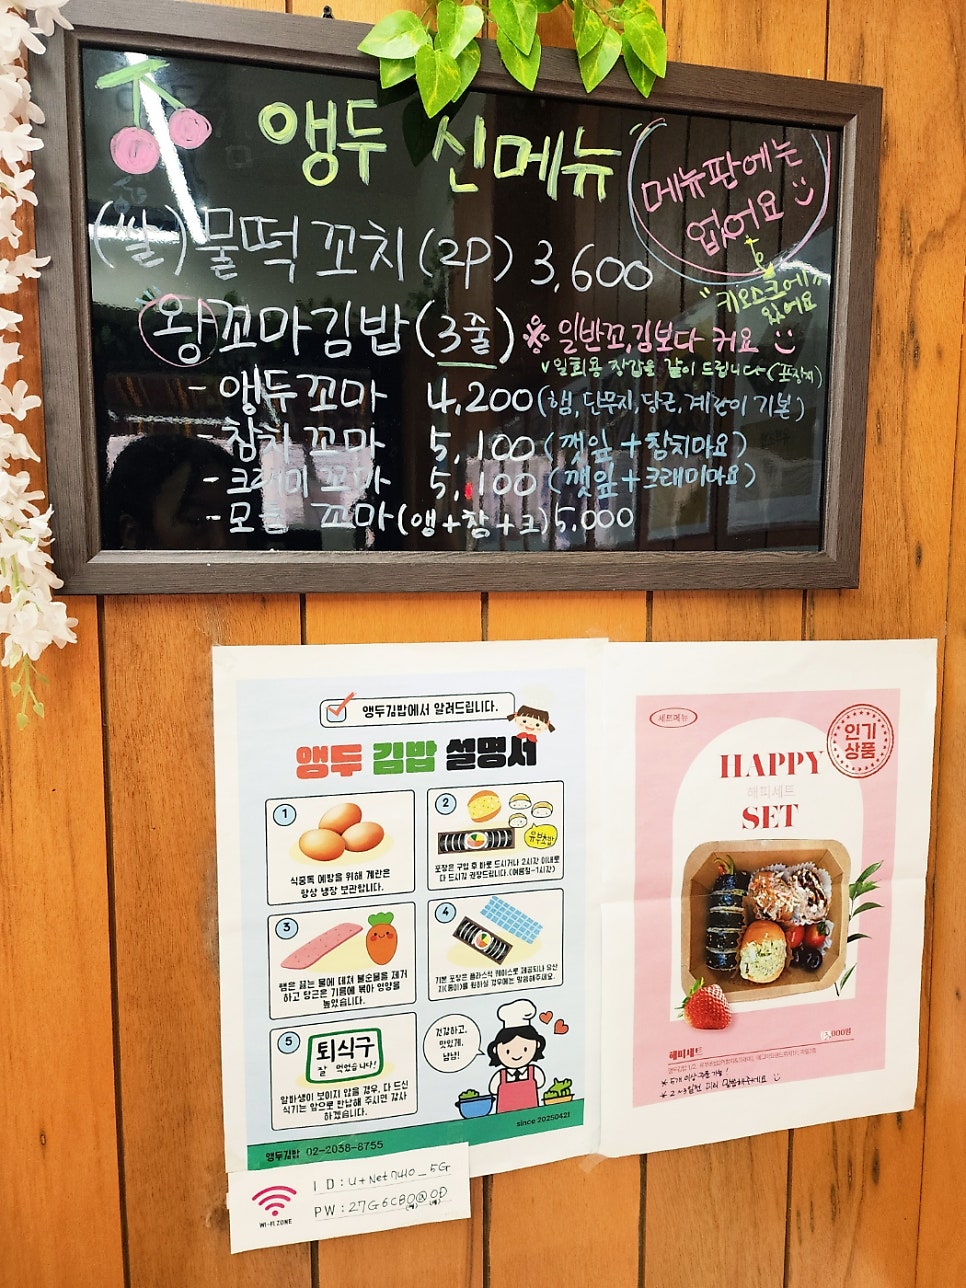 앵두 신메뉴
메뉴판에는
없어요
"키오스크에"
있어요
(쌀)물떡꼬치(2P) 3,600
왕꼬마김밥(3줄) ※ 일반꼬.김보다 커요
v 일회용 장갑을 같이 드립니다(포장시)
- 앵두꼬마 4,200(햄,단무지,당근,계란이 기본)
- 참치꼬마 5,100(깻잎+참치마요)
- 크래미꼬마 5,100(깻잎+크래미마요)
- 모듬 꼬마(앵+참+크)5,000
앵두김밥에서 알려드립니다.
앵두 김밥 설명서
1
식중독 예방을 위해 계란은
항상 냉장 보관합니다.
2
유부초밥
포장은 구입 후 바로 드시거나 2시간 이내로
다 드시길 권장드립니다.(여름철-1시간)
3
햄은 끓는 물에 데쳐 불순물을 제거
하고 당근은 기름에 볶아 영양을
높였습니다.
4
기본 포장은 플라스틱 케이스로 제공되나 유산
지(종이)를 원하실 경우에는 말씀해주세요.
5
퇴식구
잘 먹었습니다!
알바생이 보이지 않을 경우, 다 드신
식기는 앞으로 반납해 주시면 감사
하겠습니다.
건강하고,
맛있게,
냠냠!
앵두김밥 02-2038-8755
since 20250421
세트메뉴
인기
상품
HAPPY
해피세트
SET
,000원
해피세트
WI-FI ZONE
ID: U+Net7410_5G
PW: 27G6C80@0D